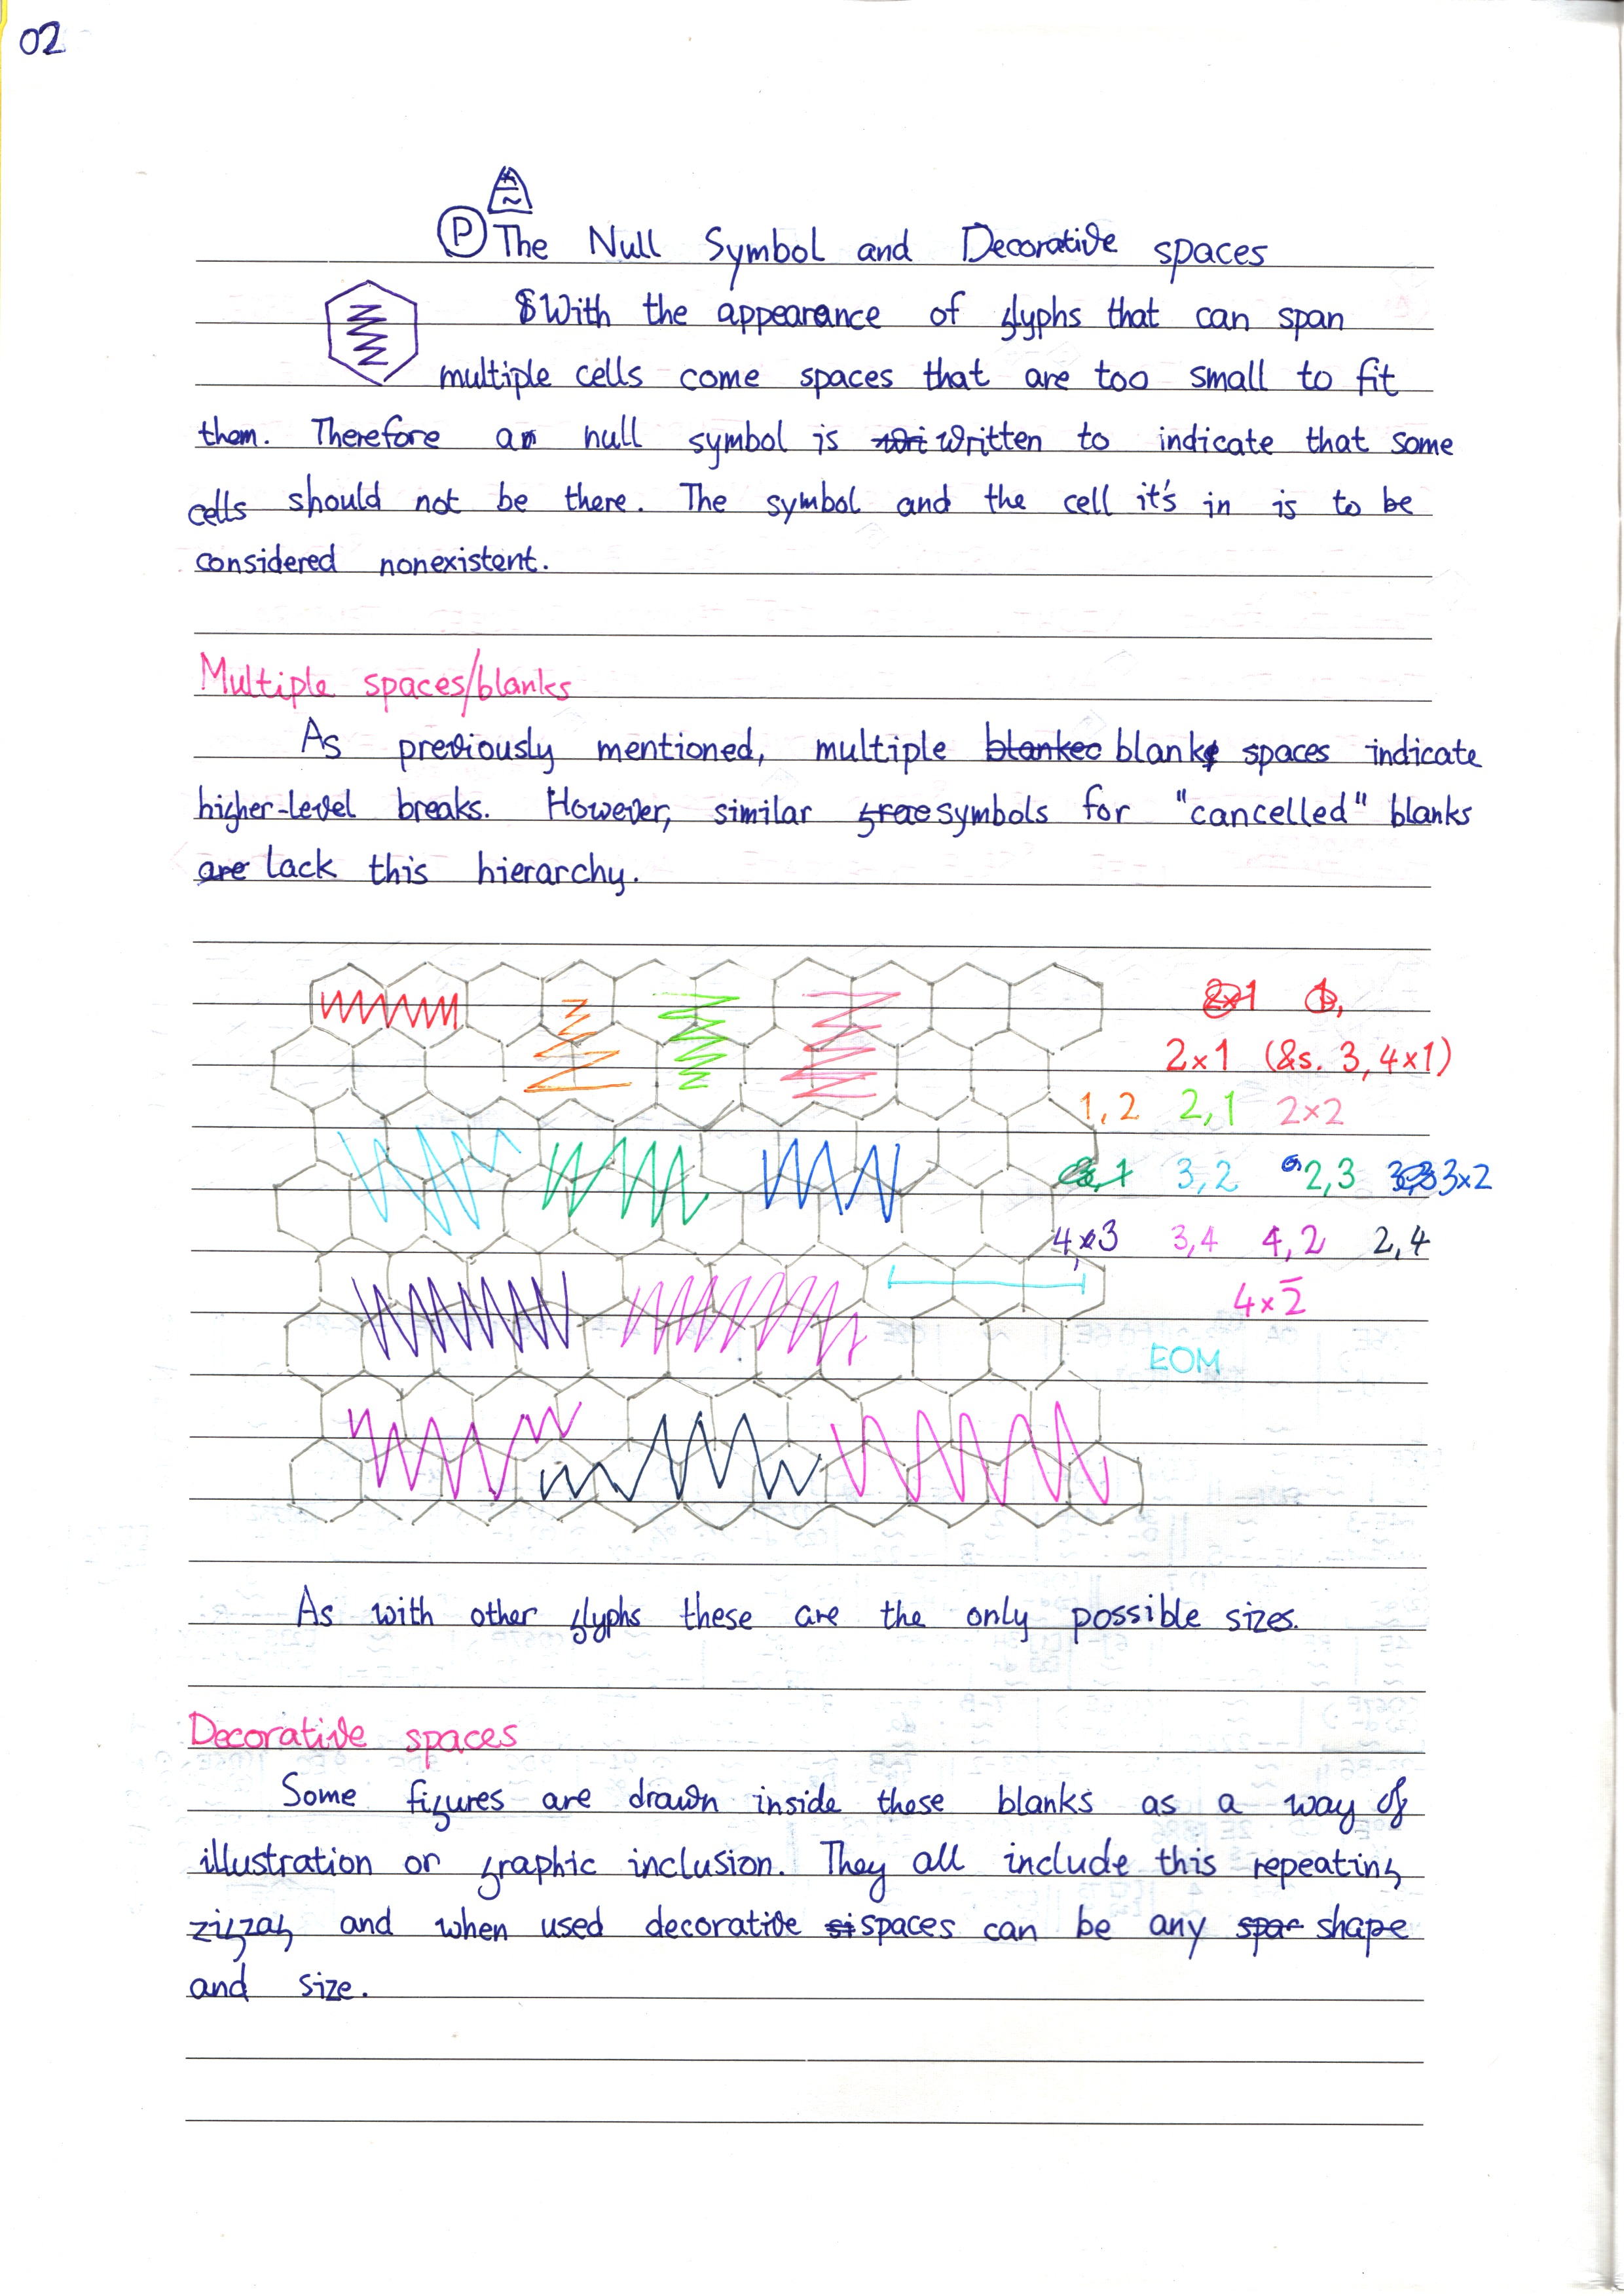 02
P The Null Symbol and Decorative spaces
With the appearance of glyphs that can span
multiple cells come spaces that are too small to fit
them. Therefore a null symbol is written to indicate that some
cells should not be there. The symbol and the cell it's in is to be
considered nonexistent.
Multiple spaces/blanks
As previously mentioned, multiple blank spaces indicate
higher-level breaks. However, similar symbols for "cancelled" blanks
lack this hierarchy.
2×1 (&s. 3,4×1)
1,2 2,1 2×2
3,2 2,3 3×2
4,3 3,4 4,2 2,4
4×2
EOM
As with other glyphs these are the only possible sizes.
Decorative spaces
Some figures are drawn inside these blanks as a way of
illustration or graphic inclusion. They all include this repeating
zigzag and when used decorative spaces can be any shape
and size.